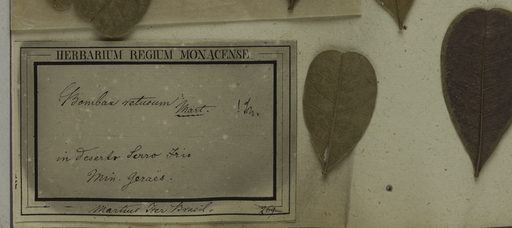 HERBARIUM REGIUM MONACENSE
Bombax retusum Mart.
in deserto Serro Frio
Min. Geraës.
Martius Iter Brasil.